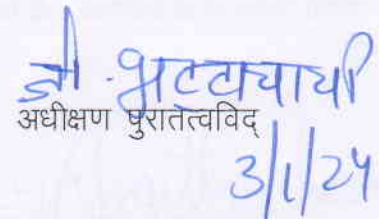 जी. भट्टाचार्या
अधीक्षण पुरातत्वविद्
3/1/24